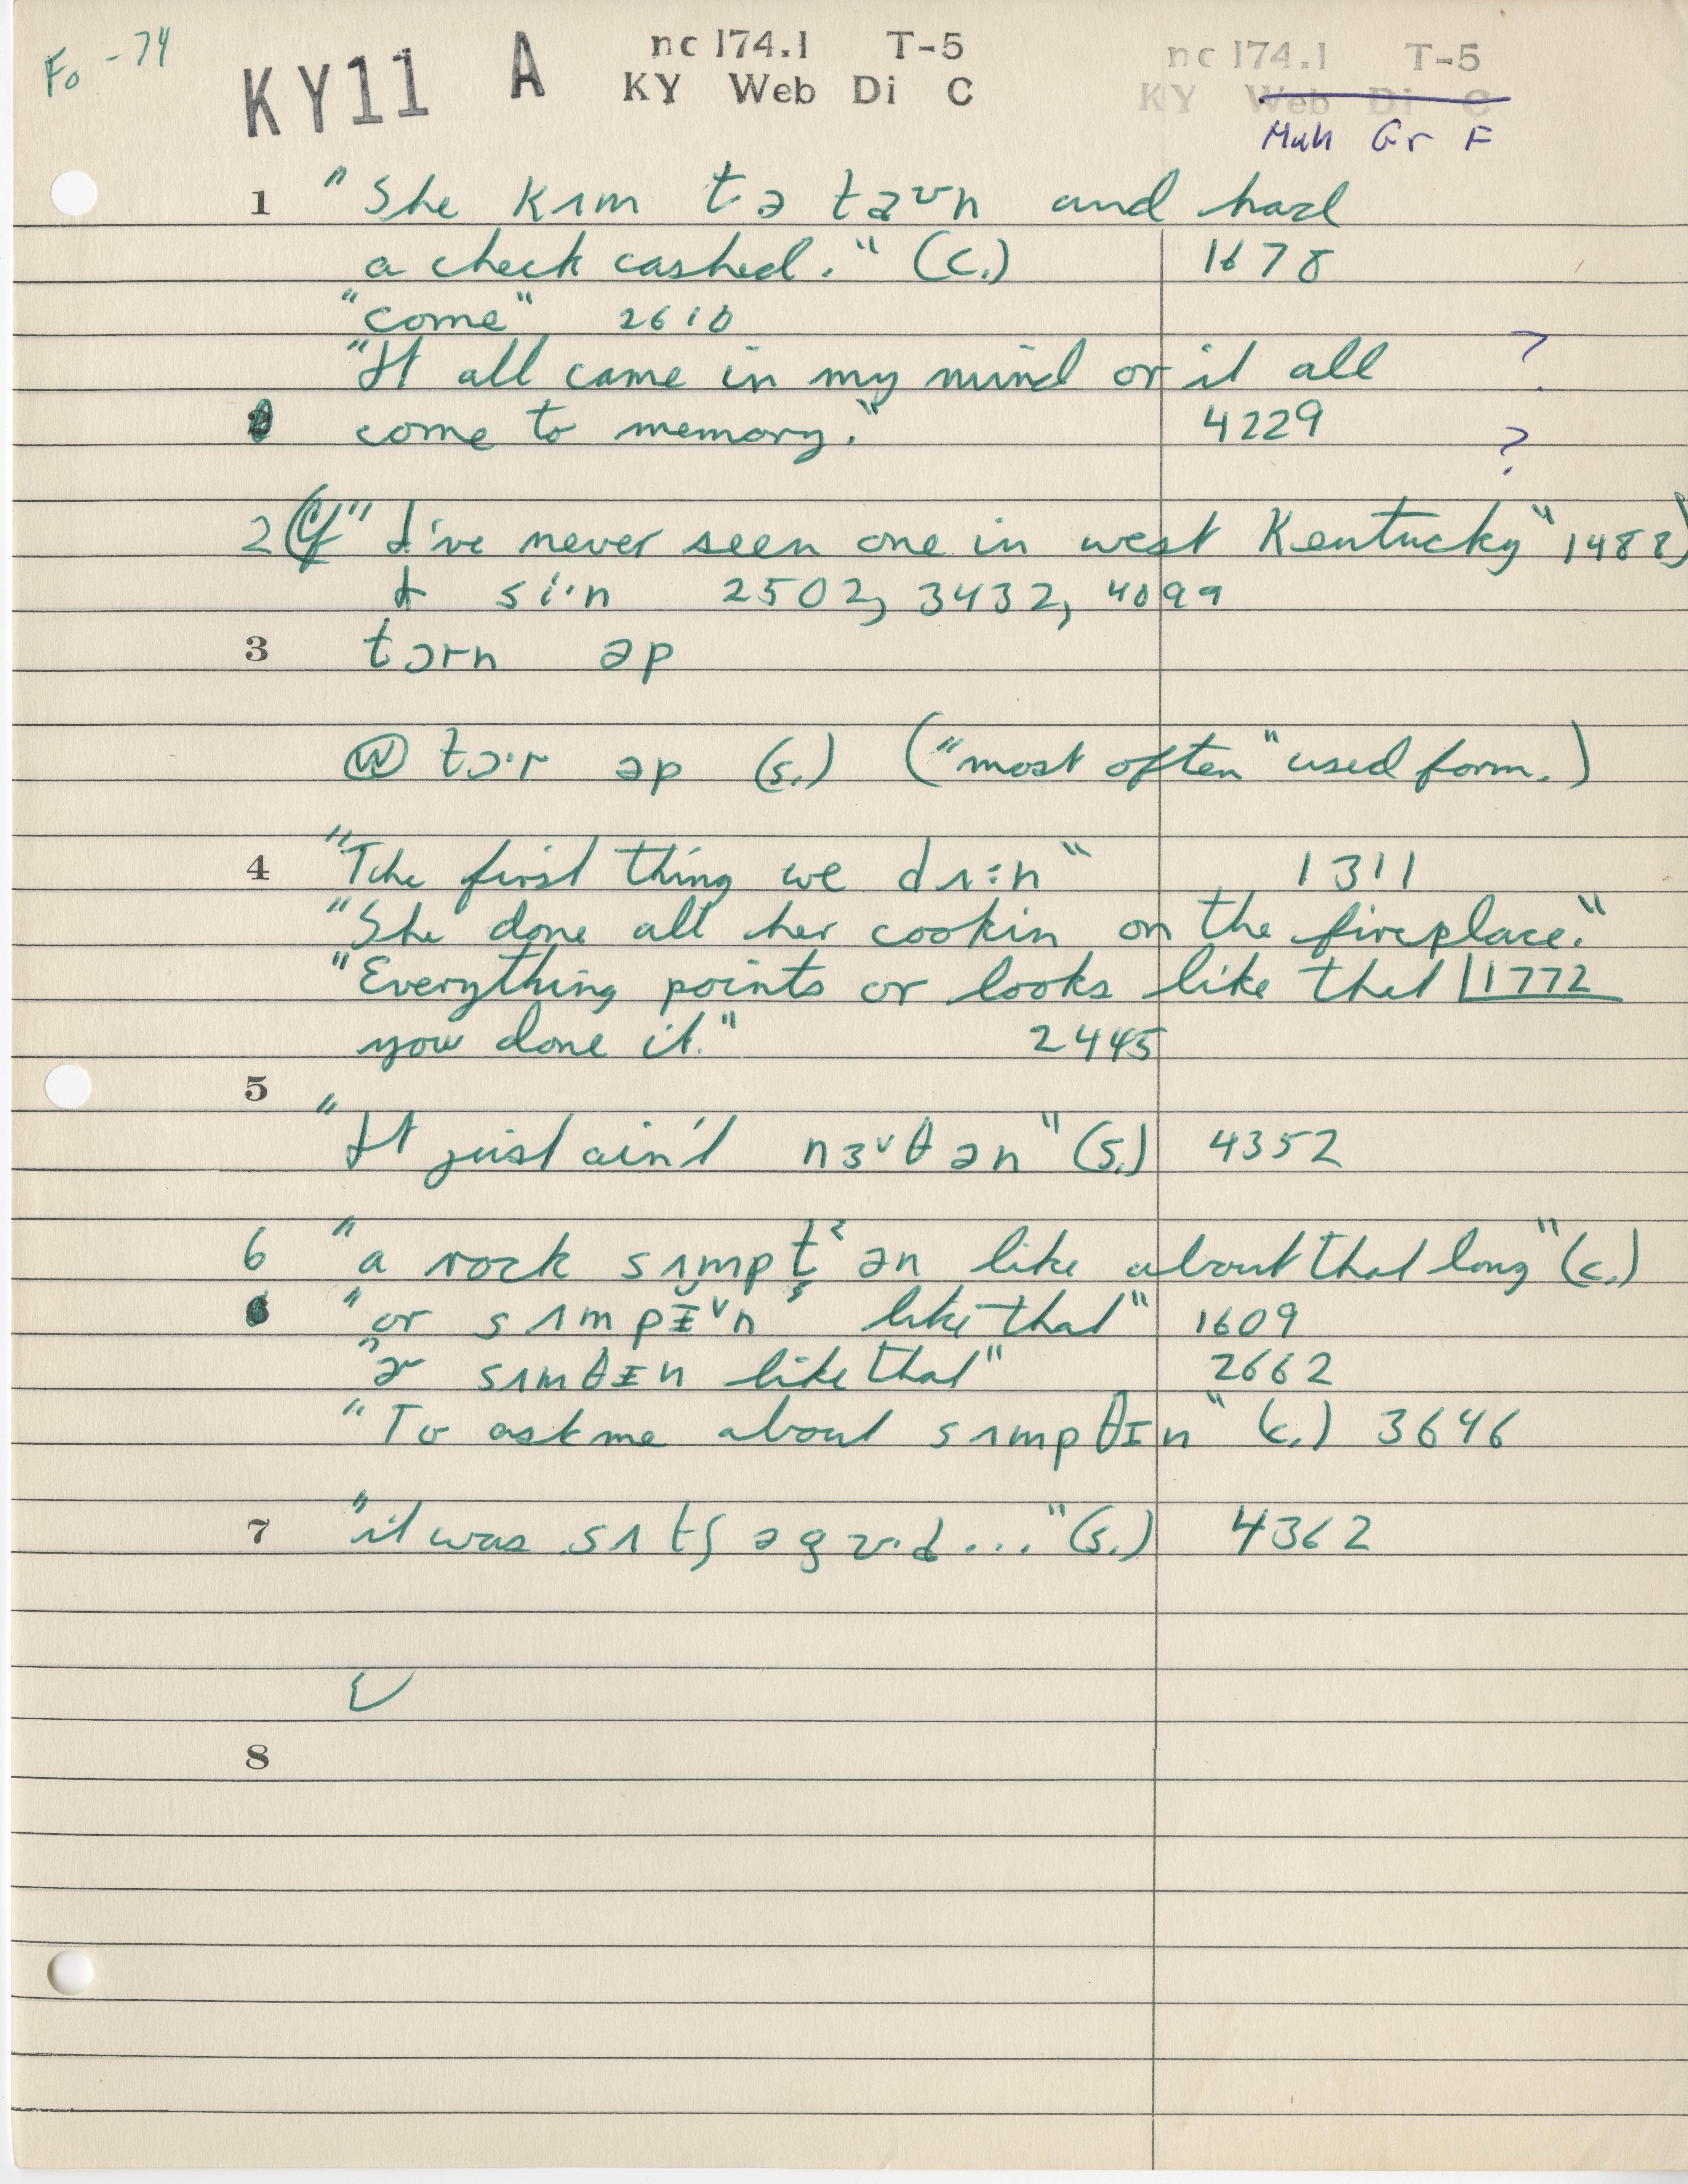 Fo-74
KY11 A nc 174.1 T-5 nc 174.1 T-5
KY Web Di C KY Web Di C
Muh Gr F
1 "She kʌm tə taʊn and had
a check cashed." (c.) 1678
"come" 2610
"It all came in my mind or it all ?
come to memory." 4229 ?
2 (cf "I've never seen one in west Kentucky" 1488)
+ si·n 2502, 3432, 4099
3 tɔrn əp
Ⓦ tɔ·r əp (s.) ("most often" used form.)
4 "The first thing we dʌ:n" 1311
"She done all her cookin on the fireplace."
"Everything points or looks like that 1772
you done it." 2445
5
"It just ain't nɜ˅θən" (s.) 4352
6 "a rock sʌmptˀən like about that long" (c.)
"or sʌmpɪ˅n like that" 1609
"ɚ sʌmθɪn like that" 2662
"To ask me about sʌmpθɪn" (c.) 3646
7 "it was sʌtʃ ə gʊ·d..." (s.) 4362
8